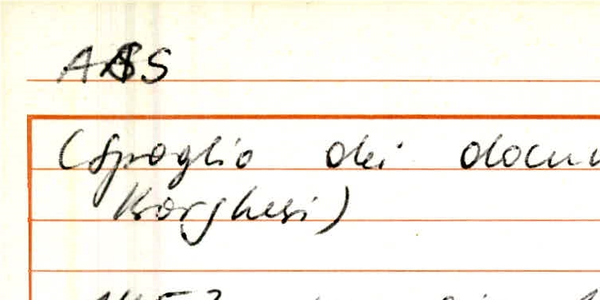 ASS
(Spoglio dei docu
Borghesi)